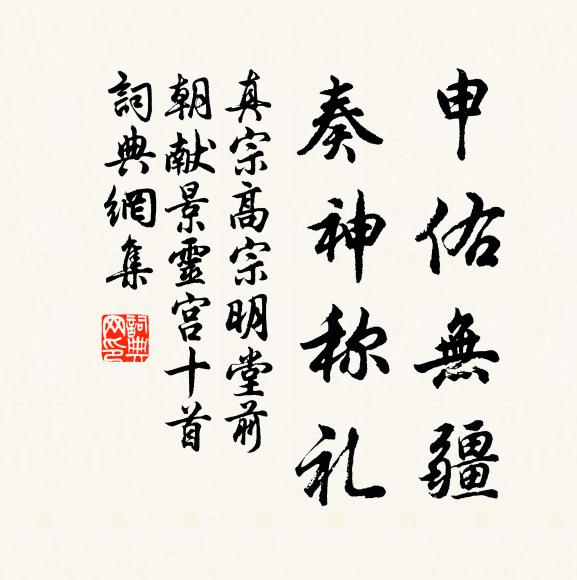 申佑無疆
奏神称礼
真宗高宗明堂前
朝献景靈宫十首
詞典網集
詞典網印